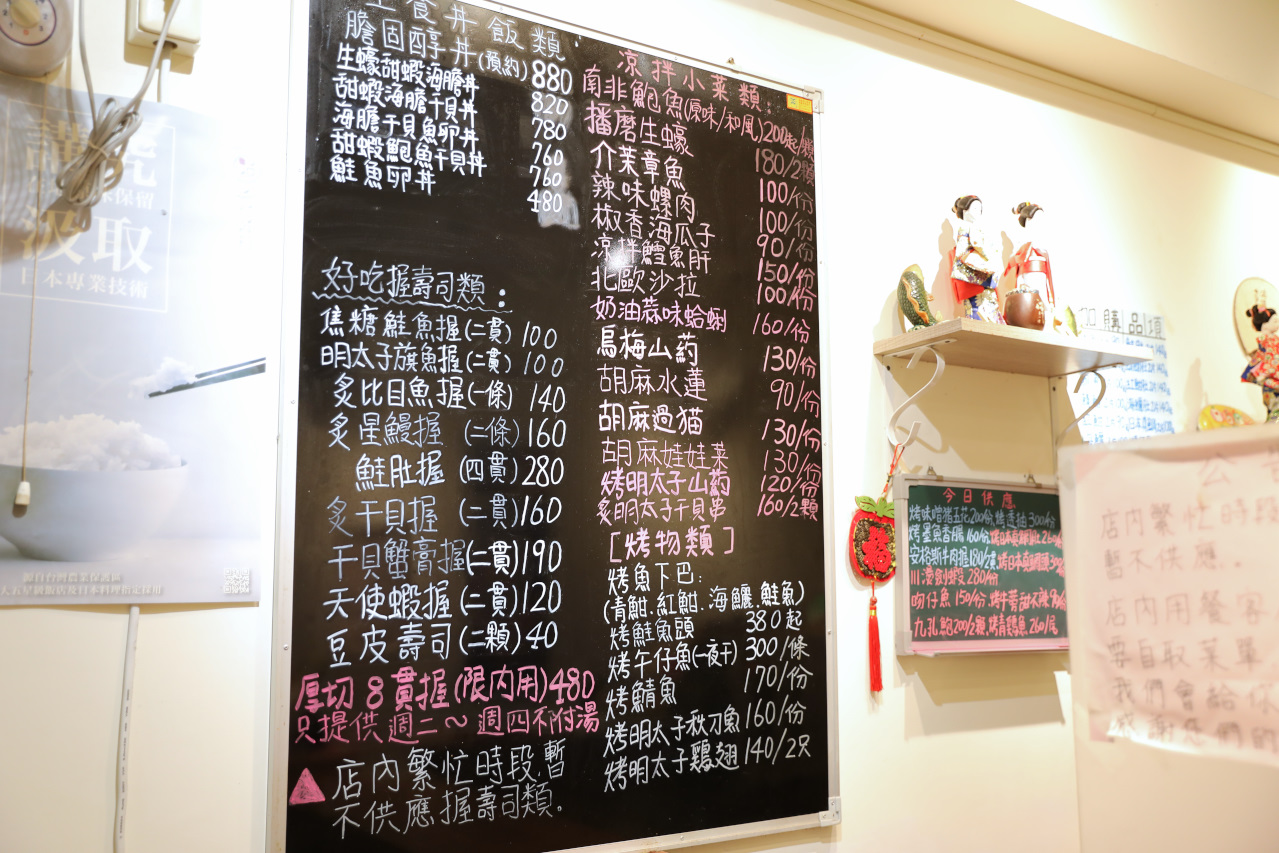 食丼飯類:
膽固醇丼(預約) 880
生蠔甜蝦海膽丼 820
甜蝦海膽干貝丼 780
海膽干貝魚卵丼 760
甜蝦鮑魚干貝丼 760
鮭魚卵丼 480
好吃握壽司類:
焦糖鮭魚握(二貫) 100
明太子旗魚握(二貫) 100
炙比目魚握(一條) 140
炙星鰻握 (二條) 160
鮭肚握 (四貫) 280
炙干貝握 (二貫) 160
干貝蟹膏握(二貫) 190
天使蝦握(二貫) 120
豆皮壽司(二顆) 40
厚切8貫握(限內用) 480
只提供週二~週四不附湯
店內繁忙時段,暫
不供應握壽司類。
涼拌小菜類:
南非鮑魚(原味/和風) 200起/顆
播磨生蠔 180/2顆
介菜章魚 100/份
辣味螺肉 100/份
椒香海瓜子 90/份
涼拌鱈魚肝 150/份
北歐沙拉 100/份
奶油蒜味蛤蜊 160/份
烏梅山葯 130/份
胡麻水蓮 90/份
胡麻過猫 130/份
胡麻娃娃菜 130/份
烤明太子山葯 120/份
炙明太子干貝串 160/2顆
[烤物類]
烤魚下巴:
(青魽.紅魽.海鱺.鮭魚)
烤鮭魚頭 380起
烤午仔魚(一夜干) 300/條
烤鯖魚 170/份
烤明太子秋刀魚 160/份
烤明太子鷄翅 140/2只
汲取
日本專業技術
源自台灣農業保護區
購品項
今日供應
烤味噌豬五花200份,燒透抽300/份
烤墨魚香腸160/份,
安格斯牛肉握180/2貫,
280/份
吻仔魚150/份,烤牛蒡甜不辣90/份
九孔鮑200/2顆,烤青鷄魚260/尾
公
店內繁忙時段
暫不供應。
店內用餐客
要自取菜單
我們會給你
感謝您們的